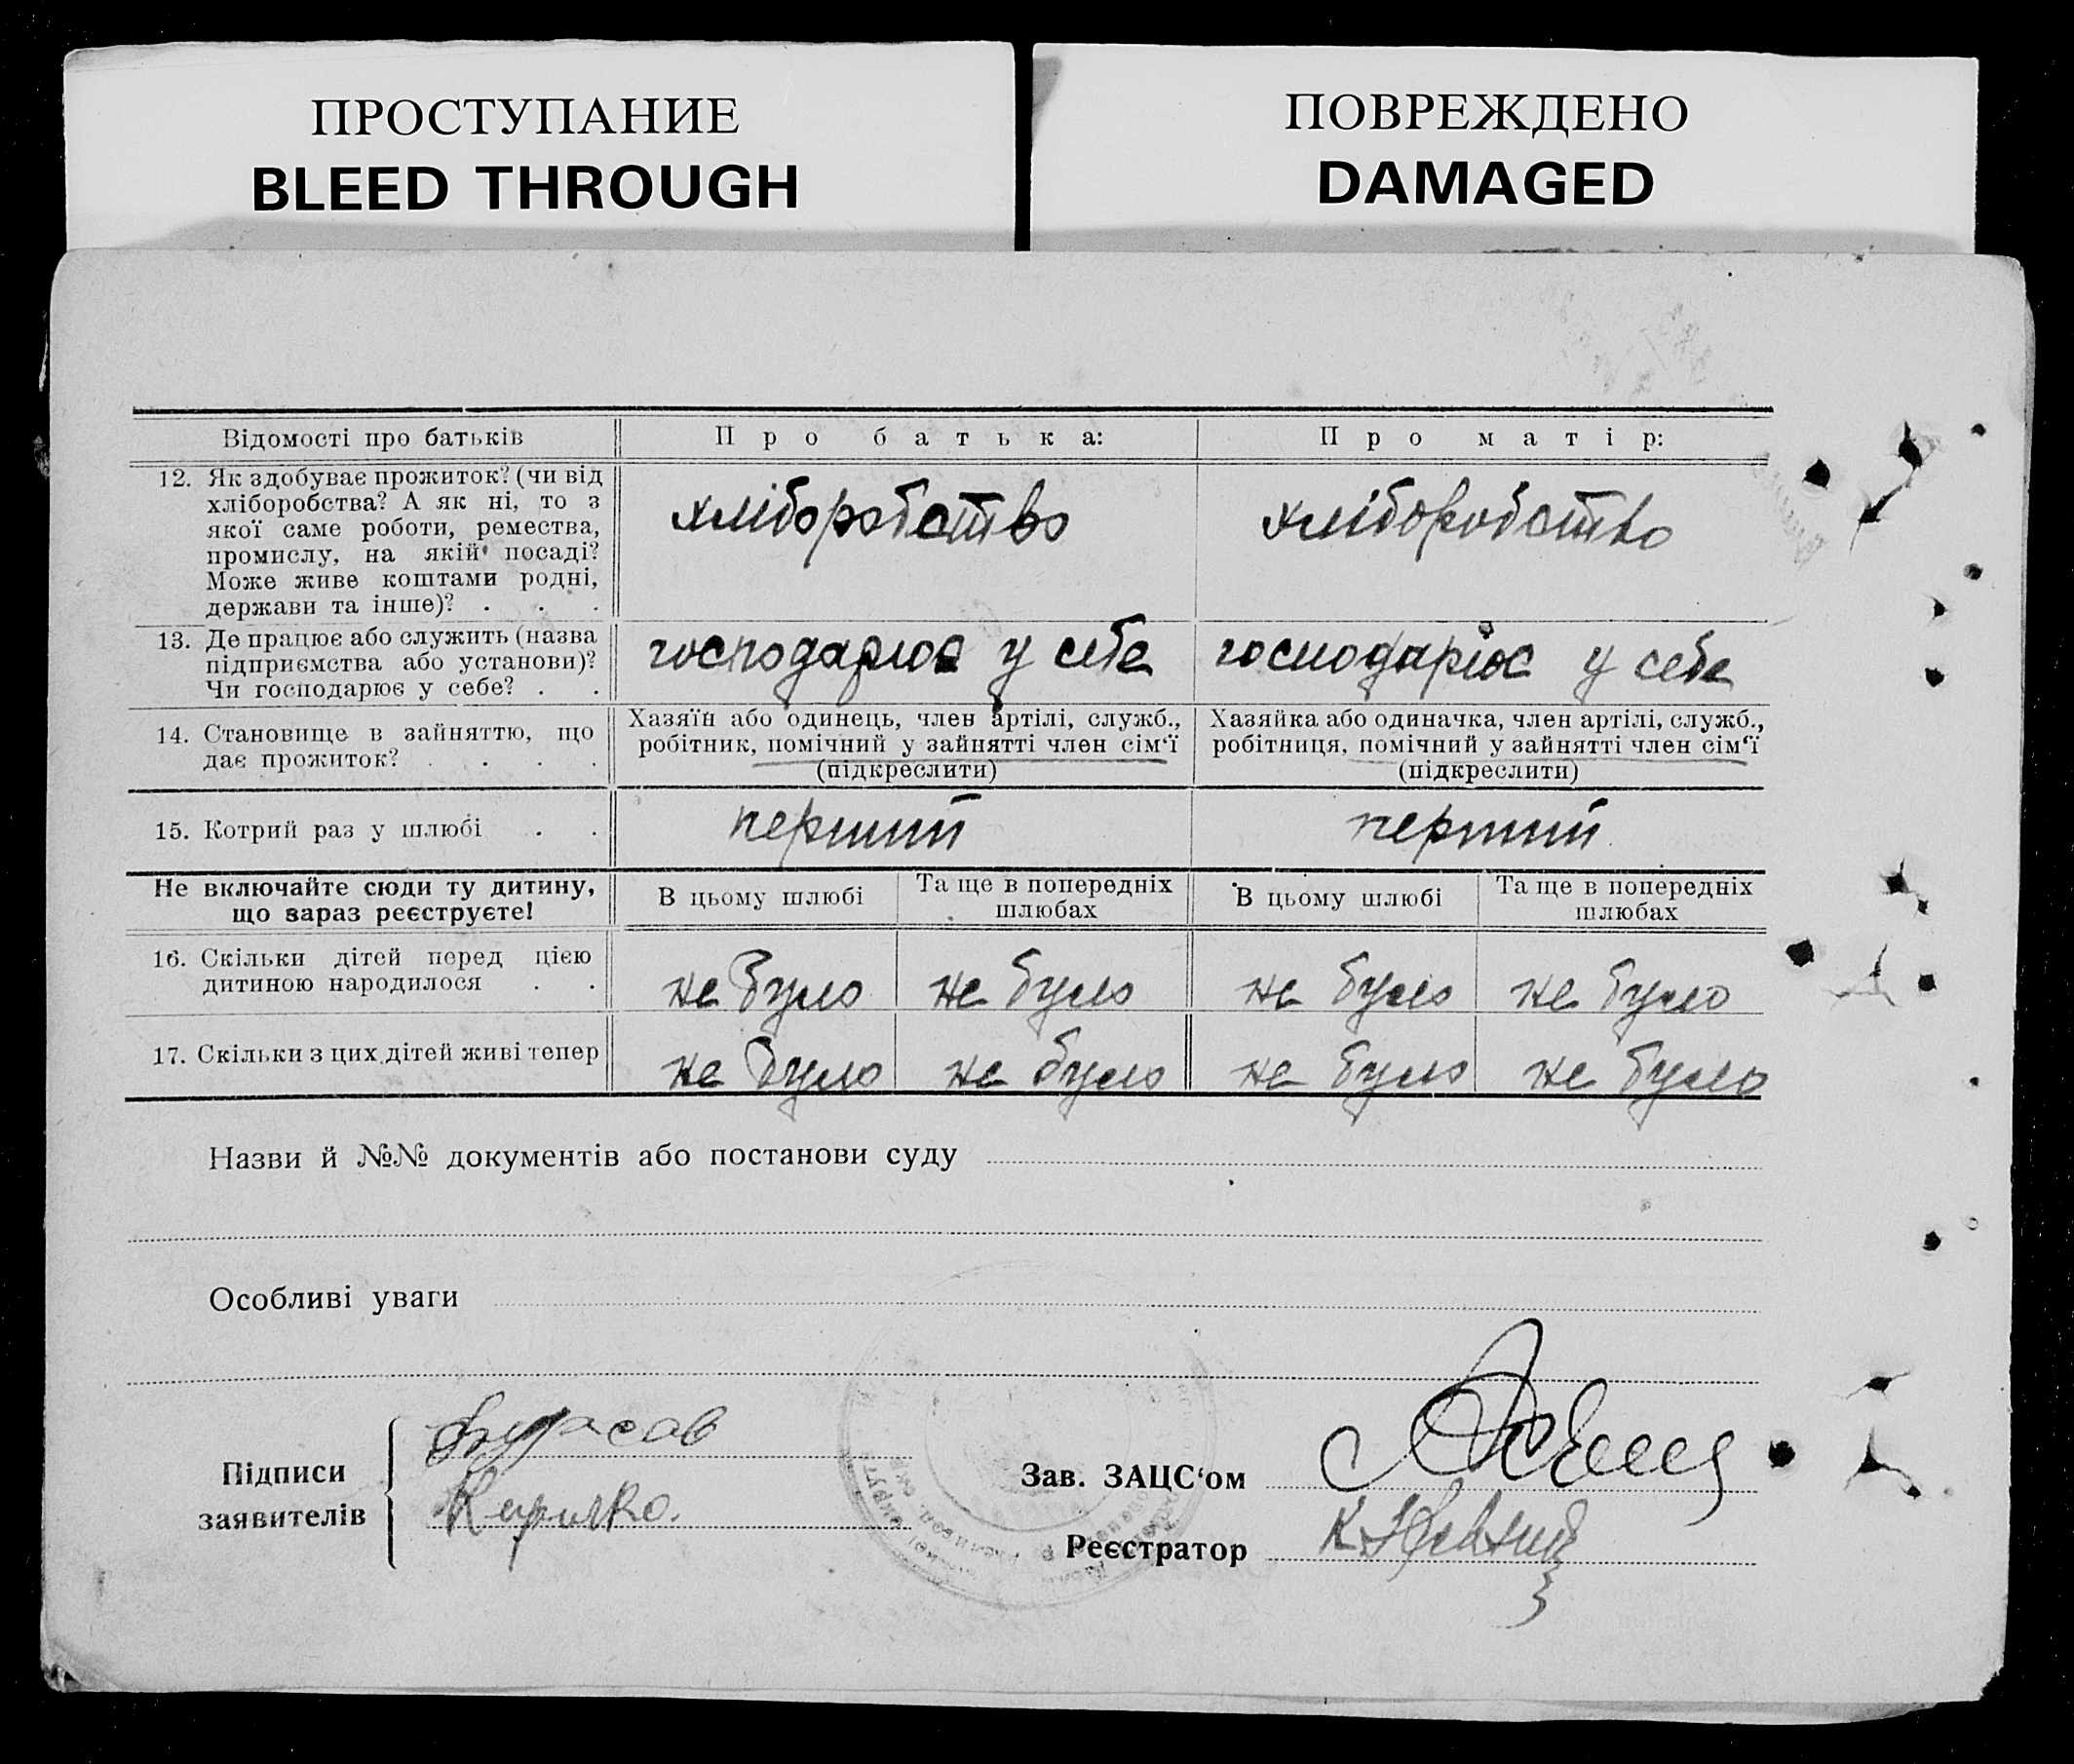 ПРОСТУПАНИЕ
BLEED THROUGH
ПОВРЕЖДЕНО
DAMAGED
Відомості про батьків
Про батька:
Про матір:
12. Як здобуває прожиток? (чи від
хліборобства? А як ні, то з
якої саме роботи, ремества,
промислу, на якій посаді?
Може живе коштами родні,
держави та інше)? . . .
хліборобство
хліборобство
13. Де працює або служить (назва
підприємства або установи)?
Чи господарює у себе? . .
господарює у себе
господарює у себе
14. Становище в зайняттю, що
дає прожиток? . . . .
Хазяїн або одинець, член артілі, служб.,
робітник, помічний у зайнятті член сім'ї
(підкреслити)
Хазяйка або одиначка, член артілі, служб.,
робітниця, помічний у зайнятті член сім'ї
(підкреслити)
15. Котрий раз у шлюбі . .
перший
перший
Не включайте сюди ту дитину,
що зараз реєструєте!
В цьому шлюбі
Та ще в попередніх
шлюбах
В цьому шлюбі
Та ще в попередніх
шлюбах
16. Скільки дітей перед цією
дитиною народилося . .
не було
не було
не було
не було
17. Скільки з цих дітей живі тепер
не було
не було
не було
не було
Назви й №№ документів або постанови суду
Особливі уваги
Підписи
заявителів
Зав. ЗАЦС'ом
Реєстратор